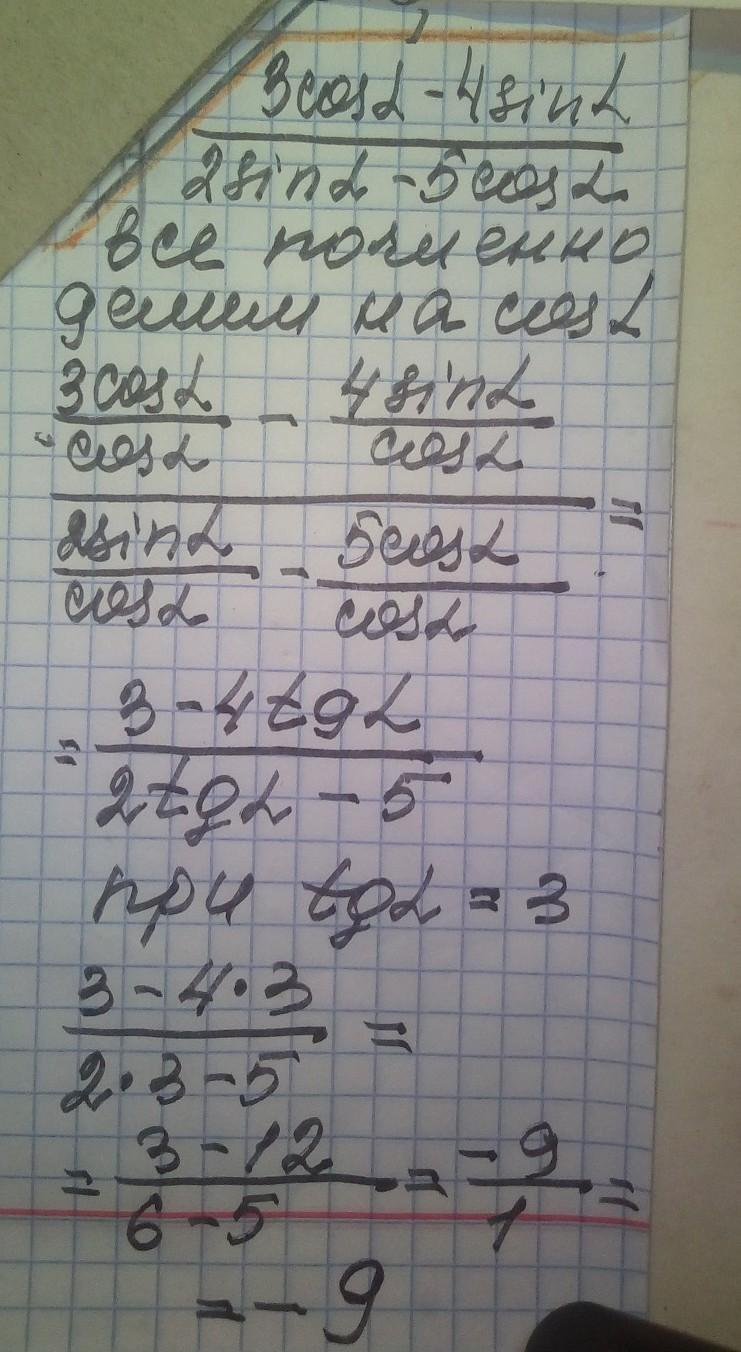 3cosα - 4sinα
2sinα - 5cosα
все почленно
делим на cosα
3cosα/cosα - 4sinα/cosα
2sinα/cosα - 5cosα/cosα =
= 3 - 4tgα
2tgα - 5
при tgα = 3
3 - 4·3 =
2·3 - 5
= 3 - 12 / 6 - 5 = -9/1 =
= - 9